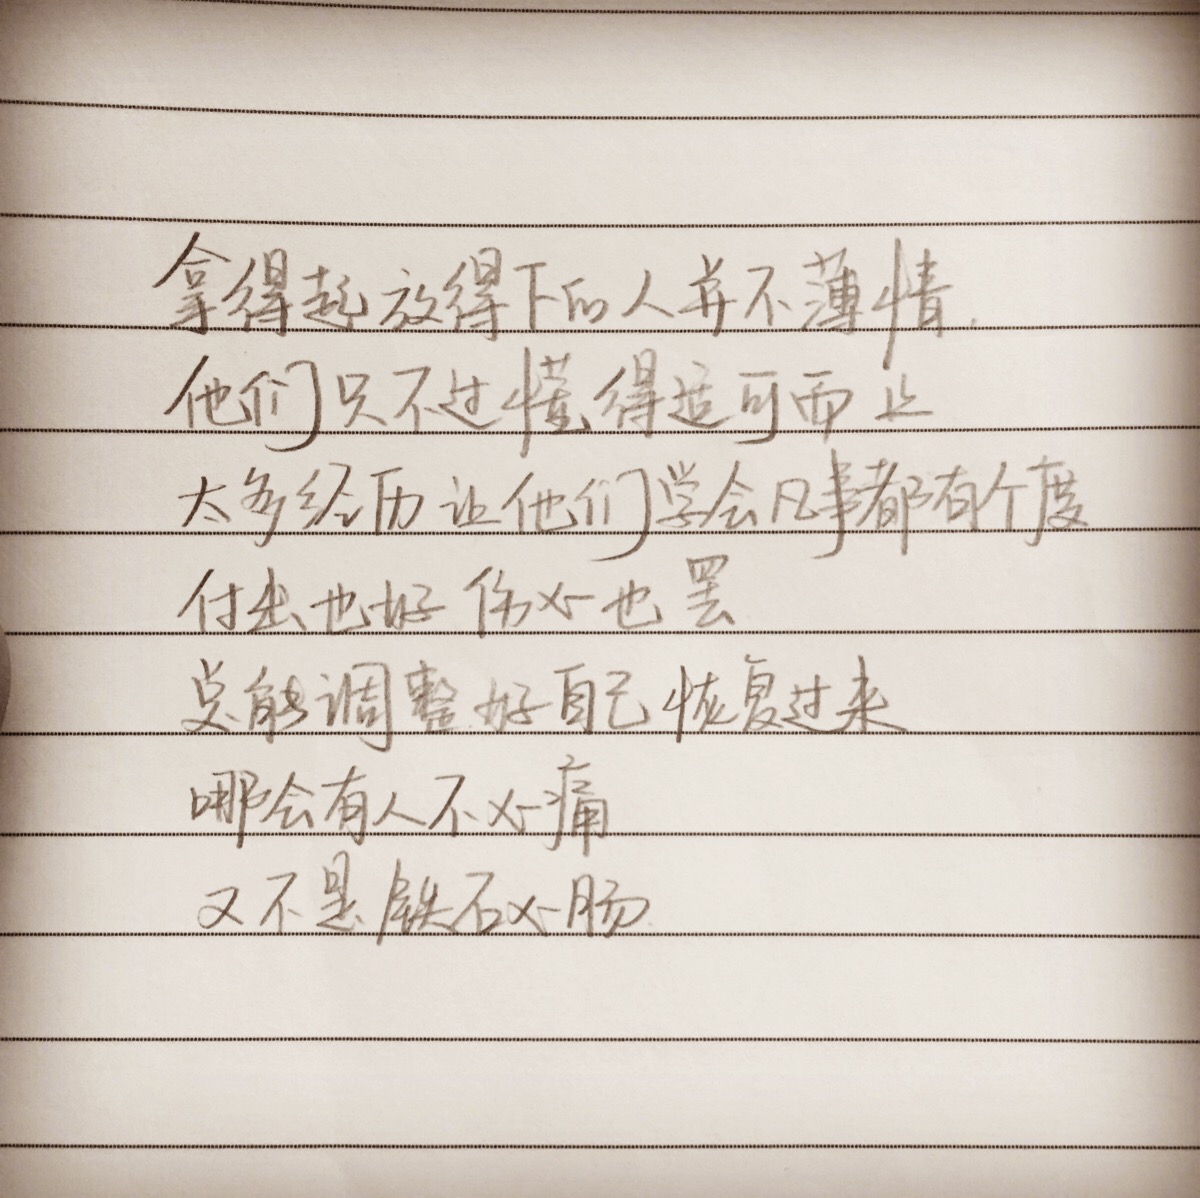 拿得起放得下的人并不薄情.
他们只不过懂得适可而止
太多经历让他们学会凡事都有个度
付出也好 伤心也罢
总能调整好自己恢复过来
哪会有人不心痛
又不是铁石心肠